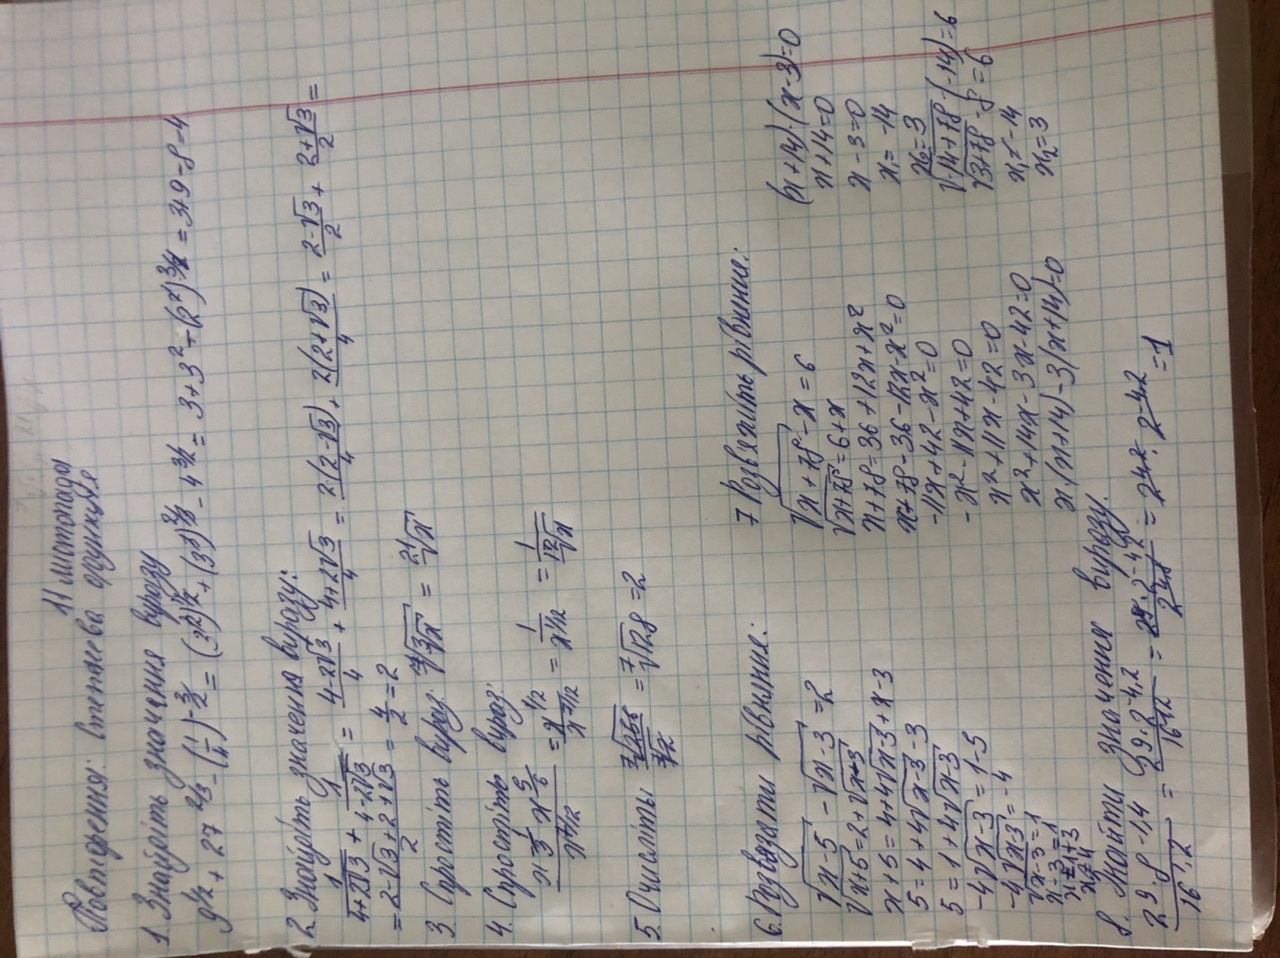 11 листопада
Повторення: степенева функція
1. Знайдіть значення виразу
9^½ + 27^⅔ - (1/4)^-3/2 = (3²)^½ + (3³)^⅔ - 4^3/2 = 3 + 3² - (2²)^3/2 = 3+9-8=4
2. Знайдіть значення виразу:
1/(4+2√3) + 1/(4-2√3) = (4-2√3)/4 + (4+2√3)/4 = 2(2-√3)/4 + 2(2+√3)/4 = (2-√3)/2 + (2+√3)/2 =
= (2-√3+2+√3)/2 = 4/2 = 2
3. Спростіть вираз ⁷√(³√x) = ²¹√x
4. Спростіть вираз:
5. Очисліть ⁷√256/⁷√2 = ⁷√128 = 2
6. Розвязати рівняння:
√x-5 - √x-3 = 2
√x+5 = 2+√x-3
x+5 = 4+4√x-3 + x-3
5 = 4+4√x-3 - 3
5 = 1+4√x-3
-4√x-3 = 1-5
-4√x-3 = -4
√x-3 = 1
x-3 = 1
x = 1+3
x = 4
7 Розвяжіть рівняння:
√x+78 - x = 6
√x+78 = 6+x
x+78 = 36+12x+x²
x+78-36-12x-x² = 0
-11x+42-x² = 0
-x²-11x+42 = 0
x²+11x-42 = 0
x²+14x-3x-42 = 0
x(x+14)-3(x+14)=0
(x+14)·(x-3)=0
x+14=0
x-3=0
x₁= -14
x₂=3
√-14+78 - (-14) = 6
√3+78 - 3 = 6
x₁≠ -14
x₂=3
8. Знайти значення виразу.